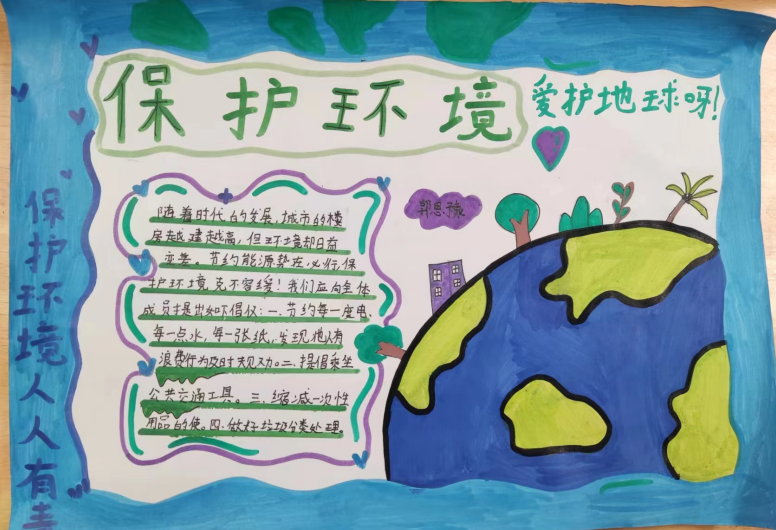 保护环境
爱护地球呀!
郭思
随着时代的发展,城市的楼
房越建越高,但环境却日益
变差。节约能源势在必行,保
护环境克不容缓!我们应向全体
成员提出如下倡仪:一.节约每一度电、
每一点水,每一张纸,发现他人有
浪费行为及时规劝。二.提倡乘坐
公共交通工具。三.缩减一次性
用品的使。四.做好垃圾分类处理。
保护环境人人有责